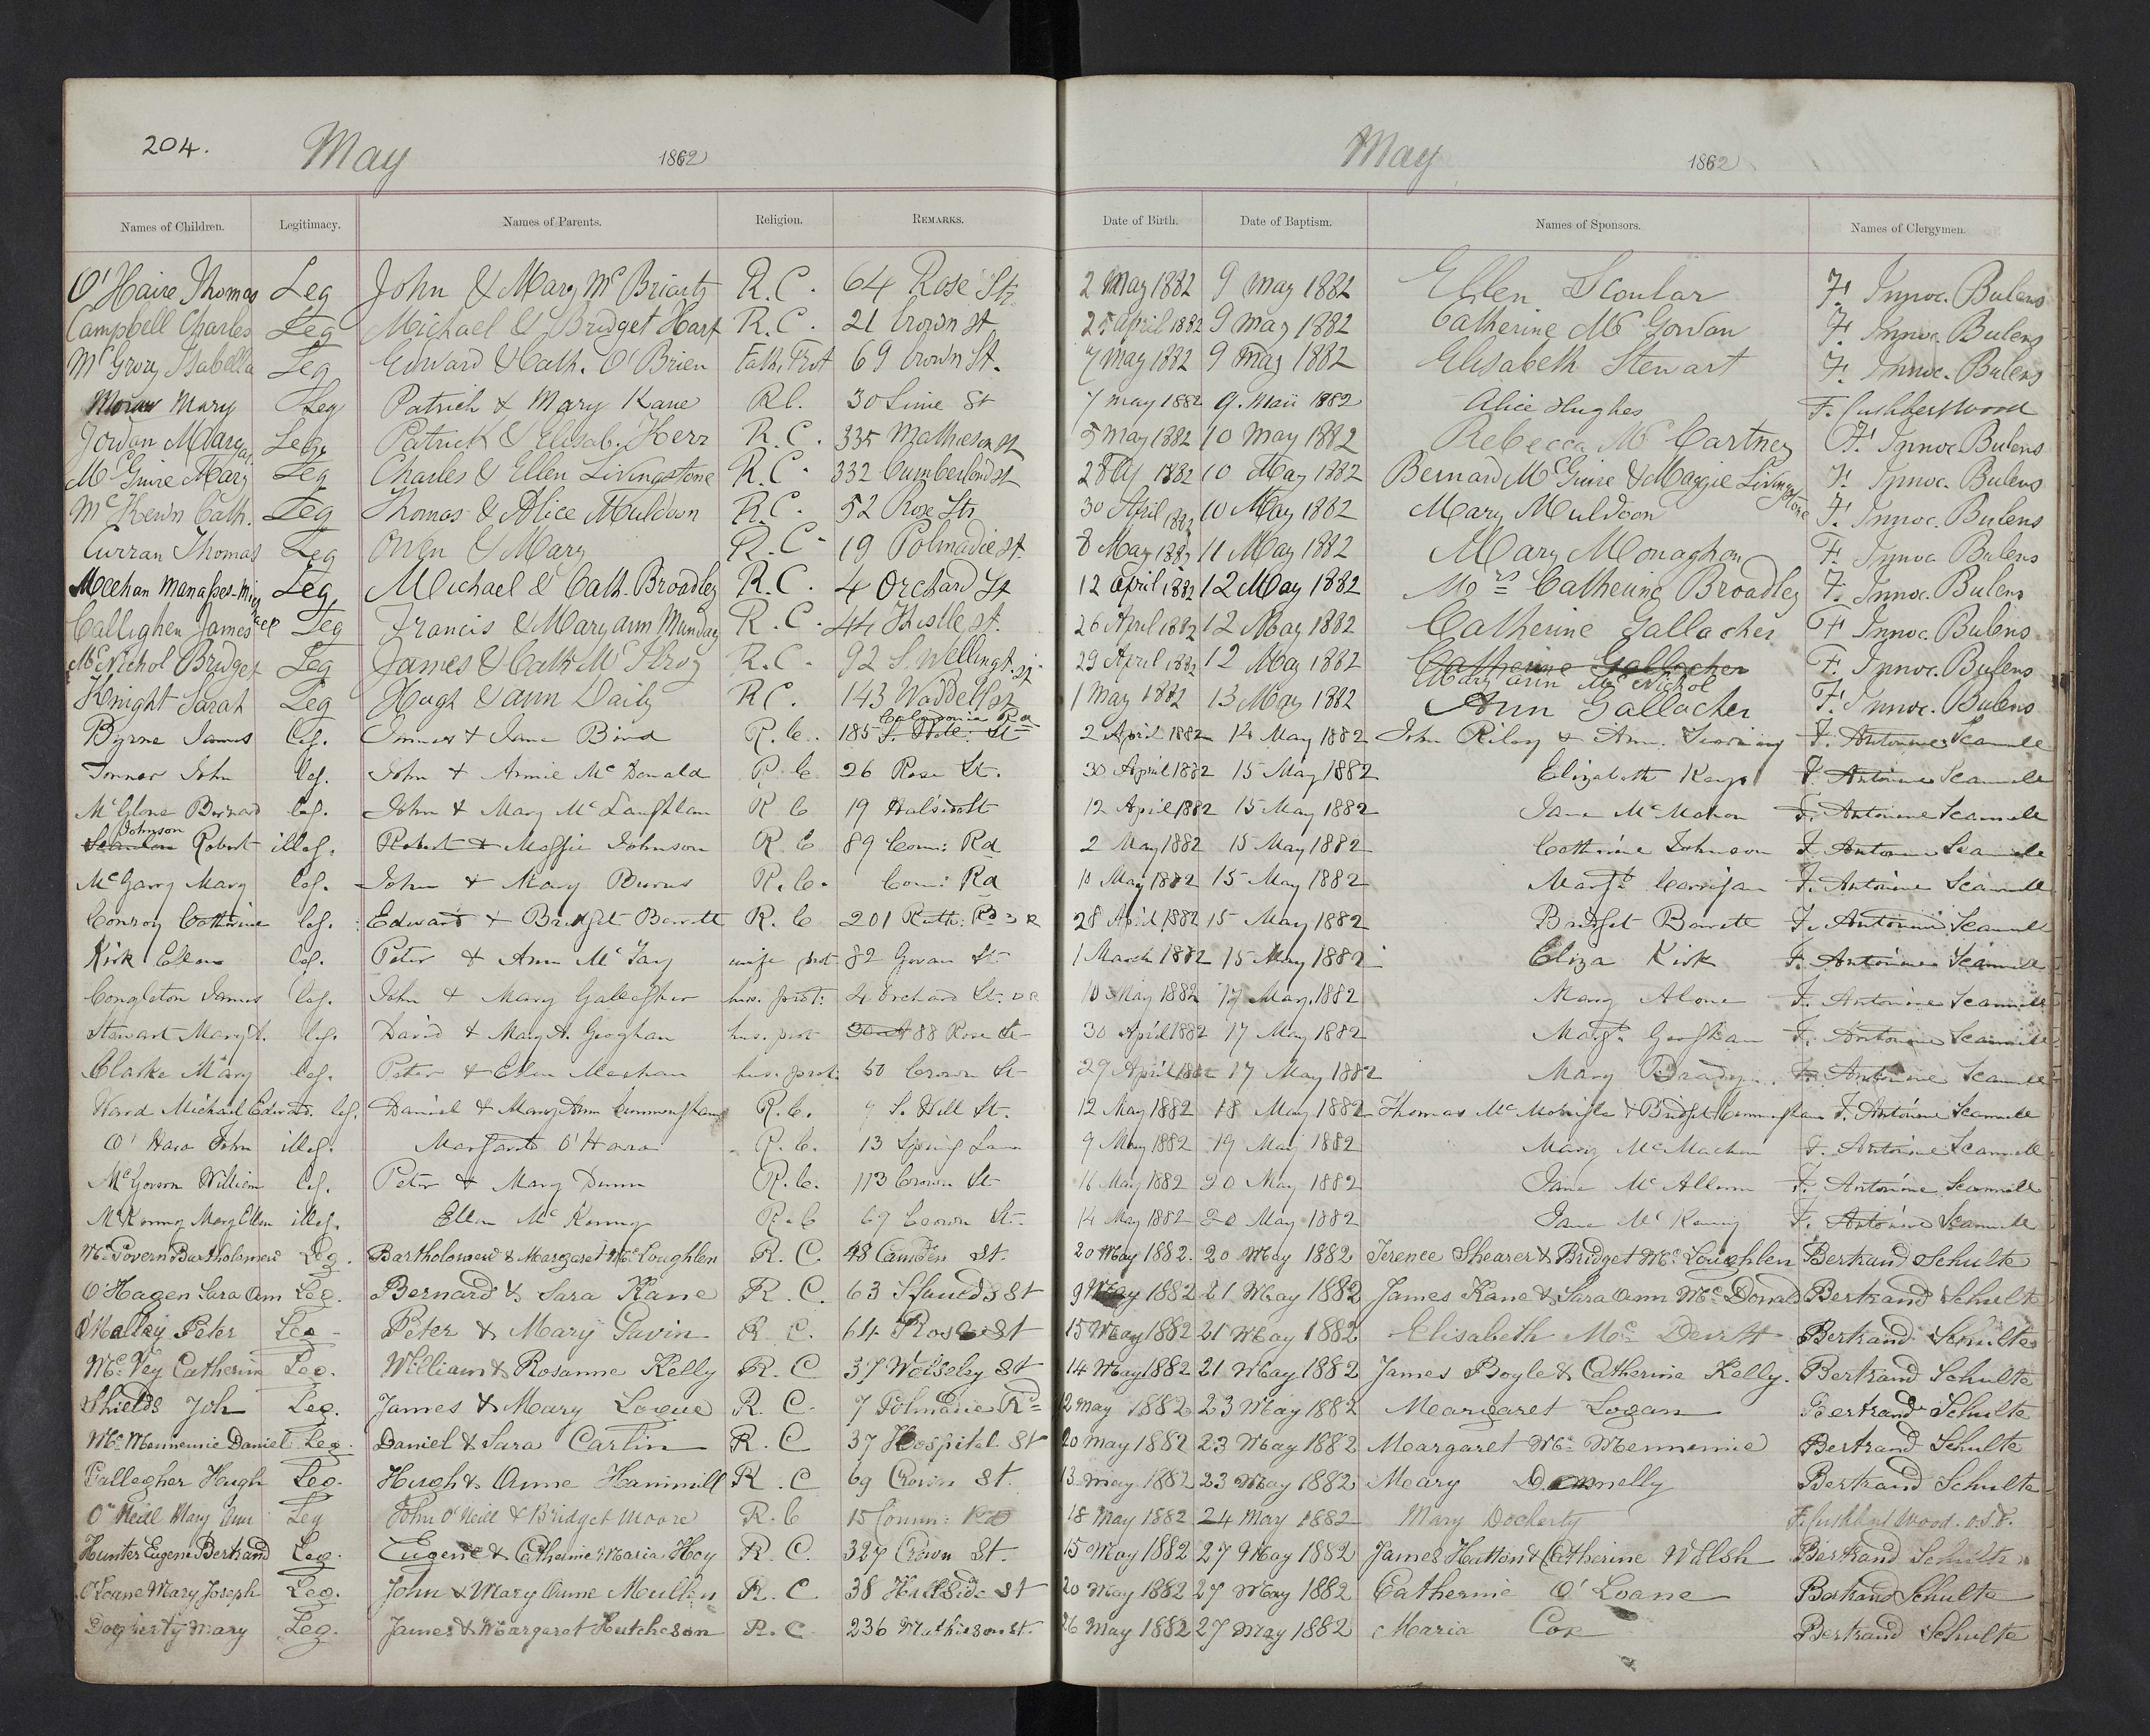 204. May 1882 May 1882
Names of Children. Legitimacy. Names of Parents. Religion. REMARKS. Date of Birth. Date of Baptism. Names of Sponsors. Names of Clergymen.
O'Haire Thomas Leg John & Mary McBriarty R.C. 64 Rose Str. 2 May 1882 9 May 1882 Ellen Scoular F. Innoc. Bulens
Campbell Charles Leg Michael & Bridget Hart R.C. 21 Crown St. 25 April 1882 9 May 1882 Catherine McGowan F. Innoc. Bulens
McGrory Isabella Leg Edward & Cath. O'Brien Fath. Prot 69 Crown St. 7 May 1882 9 May 1882 Elisabeth Stewart F. Innoc. Bulens
Moran Mary Leg Patrick & Mary Kane R.C. 30 Lime St 7 May 1882 9. Maii 1882 Alice Hughes F. Cuthbert Wood
Jordan Margar Leg. Patrick & Elisab. Kerr R.C. 335 Mathieson St 5 May 1882 10 May 1882 Rebecca McCartney F. Innoc Bulens
McGuire Mary Leg Charles & Ellen Livingstone R.C. 332 Cumberland St 1882 10 May 1882 Bernard McGuire & Maggie Livingstone F. Innoc. Bulens
McKewn Cath. Leg Thomas & Alice Muldoon R.C. 52 Rose Str 30 April 1882 10 May 1882 Mary Muldoon F. Innoc. Bulens
Curran Thomas Leg Owen & Mary R.C. 19 Polmadie St. 8 May 1882 11 May 1882 Mary Monaghan F. Innoc Bulens
Meehan Manasses-Michael Leg Michael & Cath. Broadley R.C. 4 Orchard St 12 April 1882 12 May 1882 Mrs Catherine Broadley F. Innoc. Bulens
Callighen James Leg Francis & Mary ann Munday R.C. 44 Thistle st. 26 April 1882 12 May 1882 Catherine Gallacher F Innoc. Bulens
McNichol Bridget Leg James & Cath McIlroy R.C. 92 S. Wellingt. St. 29 April 1882 12 May 1882 Catherine Gallacher Mary ann McNichol F. Innoc. Bulens
Knight Sarah Leg Hugh & ann Daily R.C. 143 Waddell st 1 May 1882 13 May 1882 Ann Gallacher F. Innoc. Bulens
Byrne James leg. James & Jane Bird R.C. 185 Caledonia Rd 2 April 1882 14 May 1882 John Riley & Ann F. Antonine Scannell
Tonner John leg. John & Annie McDonald R.C. 26 Rose St. 30 April 1882 15 May 1882 Elizabeth Keys F. Antonine Scannell
McGlone Bernard leg. John & Mary McLaughlan R C 19 12 April 1882 15 May 1882 Jane McMahon F. Antonine Scannell
Johnson Robert illeg. Robert & Maggie Johnson R C 89 Com: Rd 2 May 1882 15 May 1882 Catherine Johnson F. Antonine Scannell
McGarry Mary leg. John & Mary Burns R.C. Com: Rd 10 May 1882 15 May 1882 Margt. Carrigan F. Antonine Scannell
Conroy Catherine leg. Edward & Bridget Barrett R.C 201 Ruth: Rd 28 April 1882 15 May 1882 Bridget Barrett F. Antonine Scannell
Kirk Ellen leg. Peter & Ann McTay wife prot 82 Govan St 1 March 1882 15 May 1882 Eliza Kirk F. Antonine Scannell
Congleton James leg. John & Mary Gallagher hus. prot: 4 Orchard St. 10 May 1882 17 May 1882 Mary Alone F. Antonine Scannell
Stewart Mary A. leg. David & Mary A. Geoghan hus. prot 88 Rose St 30 April 1882 17 May 1882 Margt. Geoghan F. Antonine Scannell
Clarke Mary leg. Peter & Ellen Meehan hus. prot. 50 Crown St 29 April 1882 17 May 1882 Mary Brady F. Antonine Scannell
Ward Michael Edward. leg. Daniel & Mary Ann Cunningham R.C. 9 S. Well St. 12 May 1882 18 May 1882 Thomas McMonigle & Bridget Cunningham F. Antonine Scannell
O'Hara John illeg. Margaret O'Hara R.C. 13 Spring Lane 9 May 1882 19 May 1882 Mary McMachen F. Antonine Scannell
McGovern William leg. Peter & Mary Dunn R.C. 113 Crown St 16 May 1882 20 May 1882 Jane McAllum F. Antonine Scannell
McKenny Mary Ellen illeg. Ellen McKenny R.C 69 Crown St. 14 May 1882 20 May 1882 Jane McKenny F. Antonine Scannell
McGovern Bartholomew Leg. Bartholomew & Margaret McLoughlen R.C. 48 Camden St. 20 May 1882. 20 May 1882 Terence Shearer & Bridget McLoughlen Bertrand Schulte
O'Hagen Sara Ann Leg. Bernard & Sara Kane R.C. 63 Sfaulds St 9 May 1882 21 May 1882 James Kane & Sara Ann McDonald Bertrand Schulte
O'Malley Peter Leg Peter & Mary Gavin R.C. 64 Rose St 15 May 1882 21 May 1882 Elisabeth McDevitt Bertrand Schulte
McVey Catherin Leg. William & Rosanne Kelly R.C 37 Wolseley St 14 May 1882 21 May 1882 James Boyle & Catherine Kelly. Bertrand Schulte
Shields Joh Leg. James & Mary Logue R.C. 7 Polmadie Rd 12 May 1882 23 May 1882 Margaret Logan Bertrand Schulte
McMennemie Daniel Leg. Daniel & Sara Carlin R.C 37 Hospital St 20 May 1882 23 May 1882 Margaret McMennemie Bertrand Schulte
Gallegher Hough Leg. Hugh & Anne Hammill R.C 69 Crown St. 13 May 1882 23 May 1882 Mary Donnelly Bertrand Schulte
O'Neill Mary Ann Leg John O'Neill & Bridget Moore R.C 15 Comm: Rd 18 May 1882 24 May 1882 Mary Docherty F. Cuthbert Wood. O.S.F.
Hunter Eugene Bertrand Leg. Eugene & Catherine Maria Hoy R.C. 327 Crown St. 15 May 1882 27 May 1882 James Hutton & Catherine Walsh Bertrand Schulte
O'Loane Mary Joseph Leg. John & Mary Anne Mullin R.C 38 Hillside St 20 May 1882 27 May 1882 Catherine O'Loane Bertrand Schulte
Dogherty Mary Leg. James & Margaret Hutcheson R.C 236 Mathieson St. 26 May 1882 27 May 1882 Maria Cox Bertrand Schulte